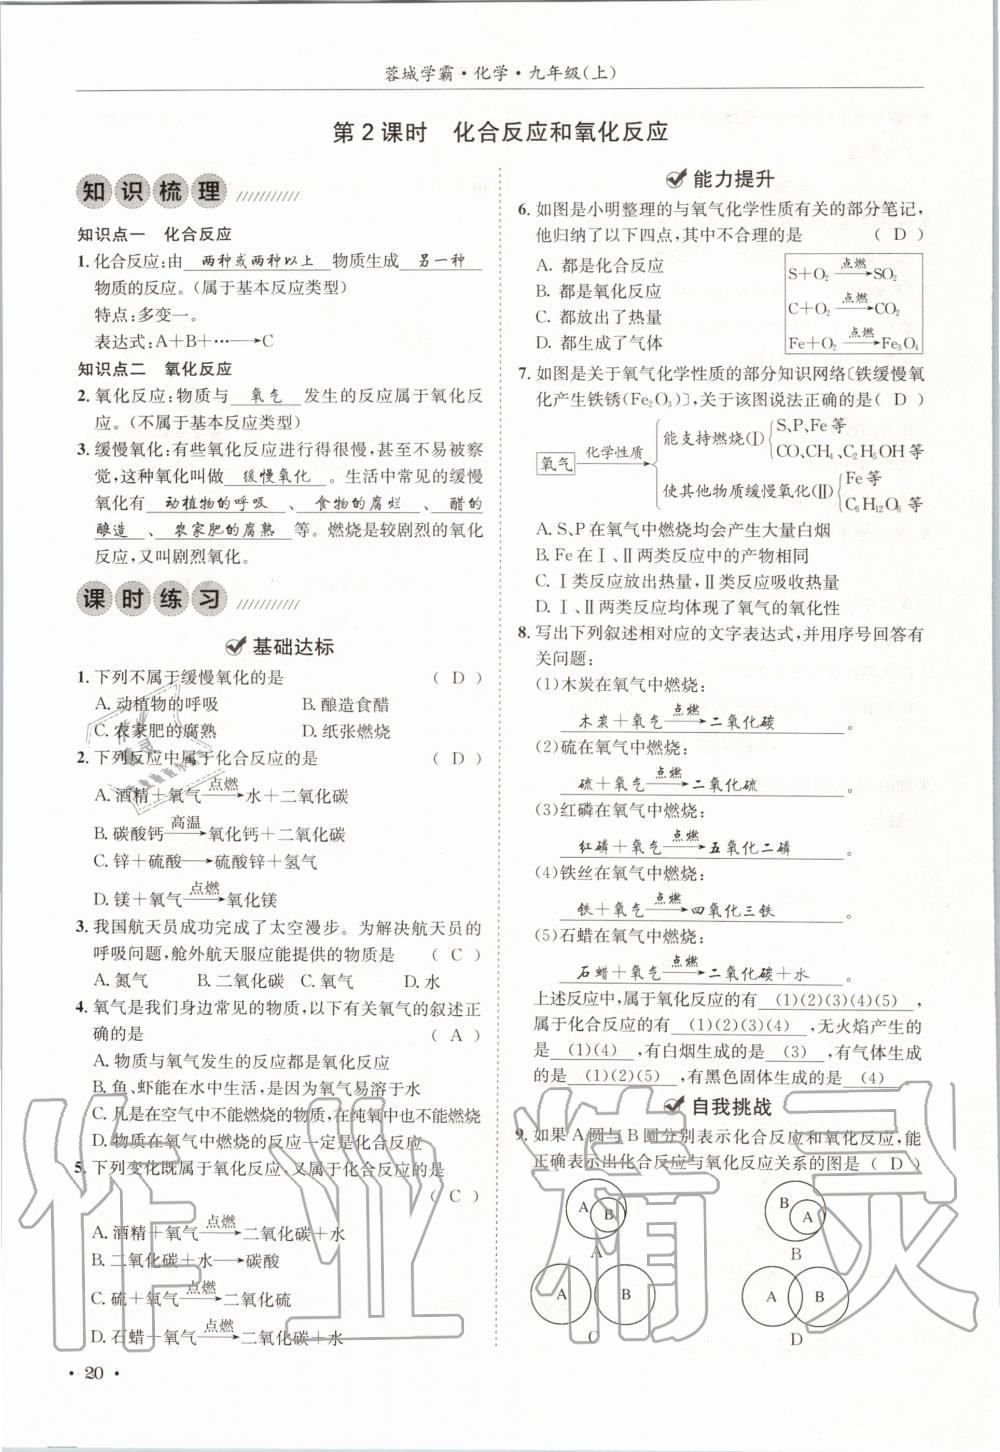 蓉城学霸·化学·九年级(上)
第2课时 化合反应和氧化反应
知识梳理
知识点一 化合反应
1. 化合反应:由 两种或两种以上 物质生成 另一种
物质的反应。(属于基本反应类型)
特点:多变一。
表达式:A+B+…⟶C
知识点二 氧化反应
2. 氧化反应:物质与 氧气 发生的反应属于氧化反
应。(不属于基本反应类型)
3. 缓慢氧化:有些氧化反应进行得很慢,甚至不易被察
觉,这种氧化叫做 缓慢氧化 。生活中常见的缓慢
氧化有 动植物的呼吸 、 食物的腐烂 、 醋的
酿造 、 农家肥的腐熟 等。燃烧是较剧烈的氧化
反应,又叫剧烈氧化。
课时练习
基础达标
1. 下列不属于缓慢氧化的是 ( D )
A. 动植物的呼吸 B. 酿造食醋
C. 农家肥的腐熟 D. 纸张燃烧
2. 下列反应中属于化合反应的是 ( D )
A. 酒精+氧气 点燃⟶ 水+二氧化碳
B. 碳酸钙 高温⟶ 氧化钙+二氧化碳
C. 锌+硫酸⟶硫酸锌+氢气
D. 镁+氧气 点燃⟶ 氧化镁
3. 我国航天员成功完成了太空漫步。为解决航天员的
呼吸问题,舱外航天服应能提供的物质是 ( C )
A. 氮气 B. 二氧化碳 C. 氧气 D. 水
4. 氧气是我们身边常见的物质,以下有关氧气的叙述正
确的是 ( A )
A. 物质与氧气发生的反应都是氧化反应
B. 鱼、虾能在水中生活,是因为氧气易溶于水
C. 凡是在空气中不能燃烧的物质,在纯氧中也不能燃烧
D. 物质在氧气中燃烧的反应一定是化合反应
5. 下列变化既属于氧化反应,又属于化合反应的是
( C )
A. 酒精+氧气 点燃⟶ 二氧化碳+水
B. 二氧化碳+水⟶碳酸
C. 硫+氧气 点燃⟶ 二氧化硫
D. 石蜡+氧气 点燃⟶ 二氧化碳+水
· 20 ·
能力提升
6. 如图是小明整理的与氧气化学性质有关的部分笔记,
他归纳了以下四点,其中不合理的是 ( D )
A. 都是化合反应
B. 都是氧化反应
C. 都放出了热量
D. 都生成了气体
S+O₂ 点燃⟶ SO₂
C+O₂ 点燃⟶ CO₂
Fe+O₂ 点燃⟶ Fe₃O₄
7. 如图是关于氧气化学性质的部分知识网络〔铁缓慢氧
化产生铁锈(Fe₂O₃)〕,关于该图说法正确的是( D )
氧气 化学性质
能支持燃烧(Ⅰ)
S、P、Fe等
CO、CH₄、C₂H₅OH等
使其他物质缓慢氧化(Ⅱ)
Fe等
C₆H₁₂O₆等
A. S、P在氧气中燃烧均会产生大量白烟
B. Fe在Ⅰ、Ⅱ两类反应中的产物相同
C. Ⅰ类反应放出热量,Ⅱ类反应吸收热量
D. Ⅰ、Ⅱ两类反应均体现了氧气的氧化性
8. 写出下列叙述相对应的文字表达式,并用序号回答有
关问题:
(1)木炭在氧气中燃烧:
木炭+氧气 点燃⟶ 二氧化碳 。
(2)硫在氧气中燃烧:
硫+氧气 点燃⟶ 二氧化硫 。
(3)红磷在氧气中燃烧:
红磷+氧气 点燃⟶ 五氧化二磷 。
(4)铁丝在氧气中燃烧:
铁+氧气 点燃⟶ 四氧化三铁 。
(5)石蜡在氧气中燃烧:
石蜡+氧气 点燃⟶ 二氧化碳+水 。
上述反应中,属于氧化反应的有 (1)(2)(3)(4)(5) ,
属于化合反应的有 (1)(2)(3)(4) ,无火焰产生的
是 (1)(4) ,有白烟生成的是 (3) ,有气体生成
的是 (1)(2)(5) ,有黑色固体生成的是 (4) 。
自我挑战
9. 如果A圆与B圆分别表示化合反应和氧化反应,能
正确表示出化合反应与氧化反应关系的图是 ( D )
A B
A
B A
B
A B
C
A B
D
作业精灵